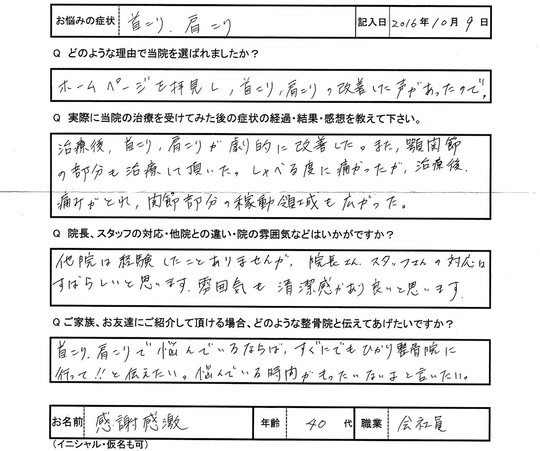 お悩みの症状 首こり、肩こり 記入日 2016年10月9日
Q どのような理由で当院を選ばれましたか？
ホームページを拝見し、首こり、肩こりの改善した声があったので。
Q 実際に当院の治療を受けてみた後の症状の経過・結果・感想を教えて下さい。
治療後、首こり、肩こりが劇的に改善した。また、顎関節
の部分も治療して頂いた。しゃべる度に痛かったが、治療後、
痛みがとれ、関節部分の稼動領域も広がった。
Q 院長、スタッフの対応・他院との違い・院の雰囲気などはいかがですか？
他院は経験したことありませんが、院長さん、スタッフさんの対応は
すばらしいと思います。雰囲気も清潔感があり良いと思います。
Q ご家族、お友達にご紹介して頂ける場合、どのような整骨院と伝えてあげたいですか？
首こり、肩こりで悩んでいるならば、すぐにでもひかり整骨院に
行って!!と伝えたい。悩んでいる時間がもったいないよと言いたい。
お名前 感謝感激 年齢 40代 職業 会社員
(イニシャル・仮名も可)